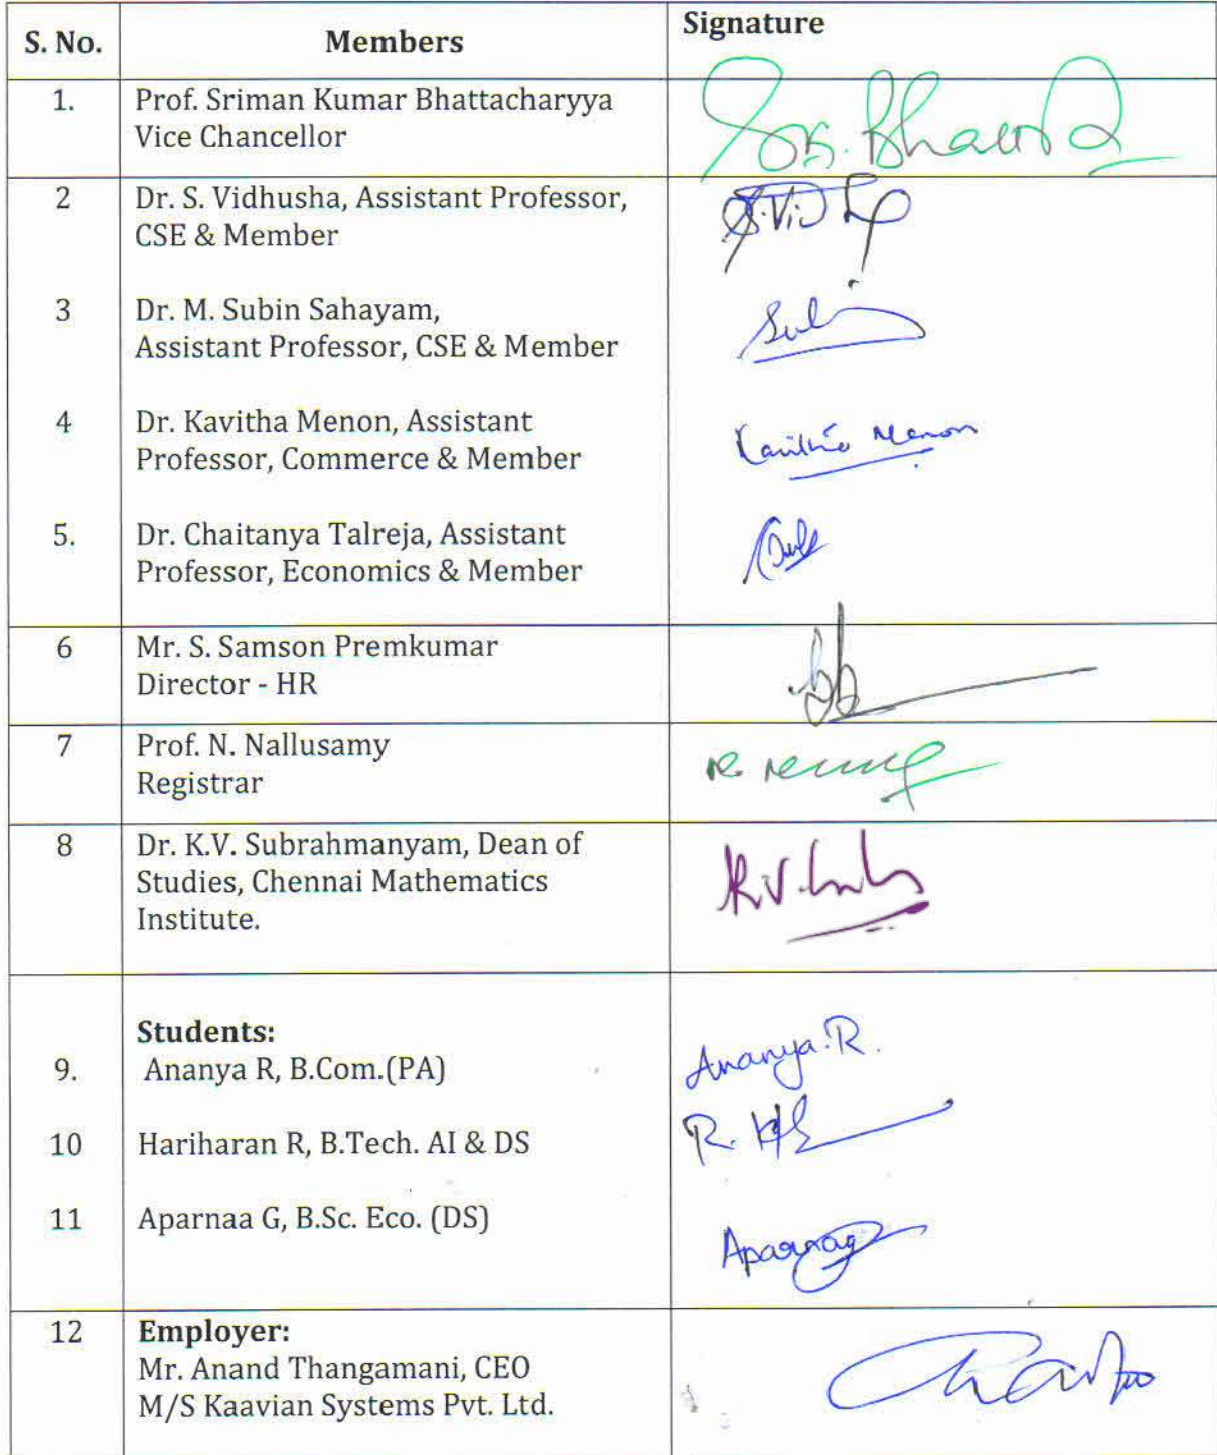 S. No.
Members
Signature
1.
Prof. Sriman Kumar Bhattacharyya
Vice Chancellor
2
Dr. S. Vidhusha, Assistant Professor,
CSE & Member
S.Vid
3
Dr. M. Subin Sahayam,
Assistant Professor, CSE & Member
4
Dr. Kavitha Menon, Assistant
Professor, Commerce & Member
Kavitha Menon
5.
Dr. Chaitanya Talreja, Assistant
Professor, Economics & Member
6
Mr. S. Samson Premkumar
Director - HR
7
Prof. N. Nallusamy
Registrar
8
Dr. K.V. Subrahmanyam, Dean of
Studies, Chennai Mathematics
Institute.
Students:
9.
Ananya R, B.Com.(PA)
Ananya.R.
10
Hariharan R, B.Tech. AI & DS
11
Aparnaa G, B.Sc. Eco. (DS)
12
Employer:
Mr. Anand Thangamani, CEO
M/S Kaavian Systems Pvt. Ltd.